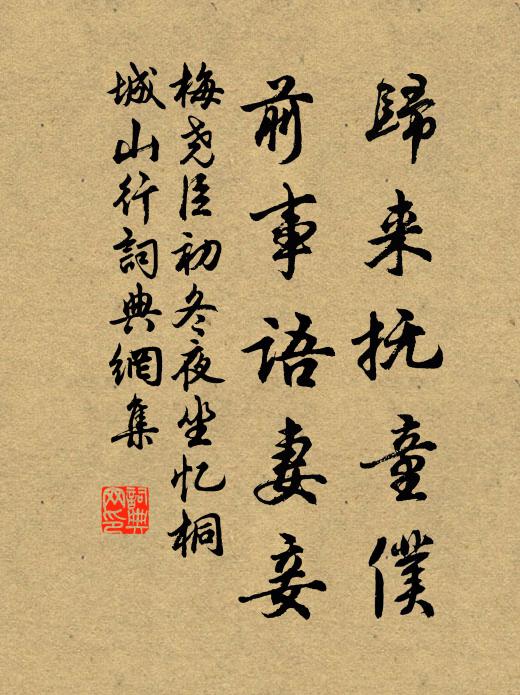 歸来抚童僕
前事語妻妾
梅尧臣初冬夜坐忆桐
城山行詞典網集
詞典
网印